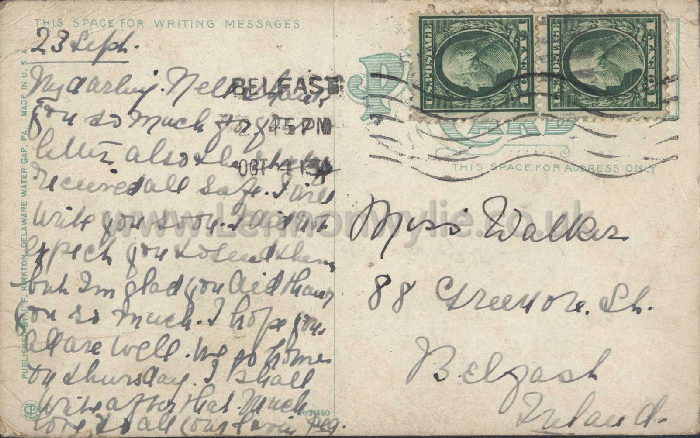 THIS SPACE FOR WRITING MESSAGES
23 Sept.
My darling Nell thank
you so much for your
letter also the
received all safe. I will
write you soon. I did not
expect you to send them
but I'm glad you did thank
you so much. I hope you
all are well. We go home
on thursday. I shall
write after that. Much
love to all
BELFAST
2 45 PM
OCT 4
U.S. POSTAGE
1 CENT 1
U.S. POSTAGE
1 CENT 1
POST CARD
THIS SPACE FOR ADDRESS ONLY
Miss Walker
88 Greenore St.
Belfast
Ireland.
www.lennonwylie.co.uk
DELAWARE WATER GAP, PA. MADE IN U.S.A.